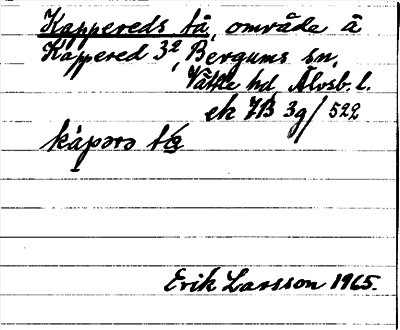 Kappereds tå, område å
Kappered 3², Bergums sn,
Vätle hd, Älvsb. l.
ek 7B 3g/522
Erik Larsson 1965.